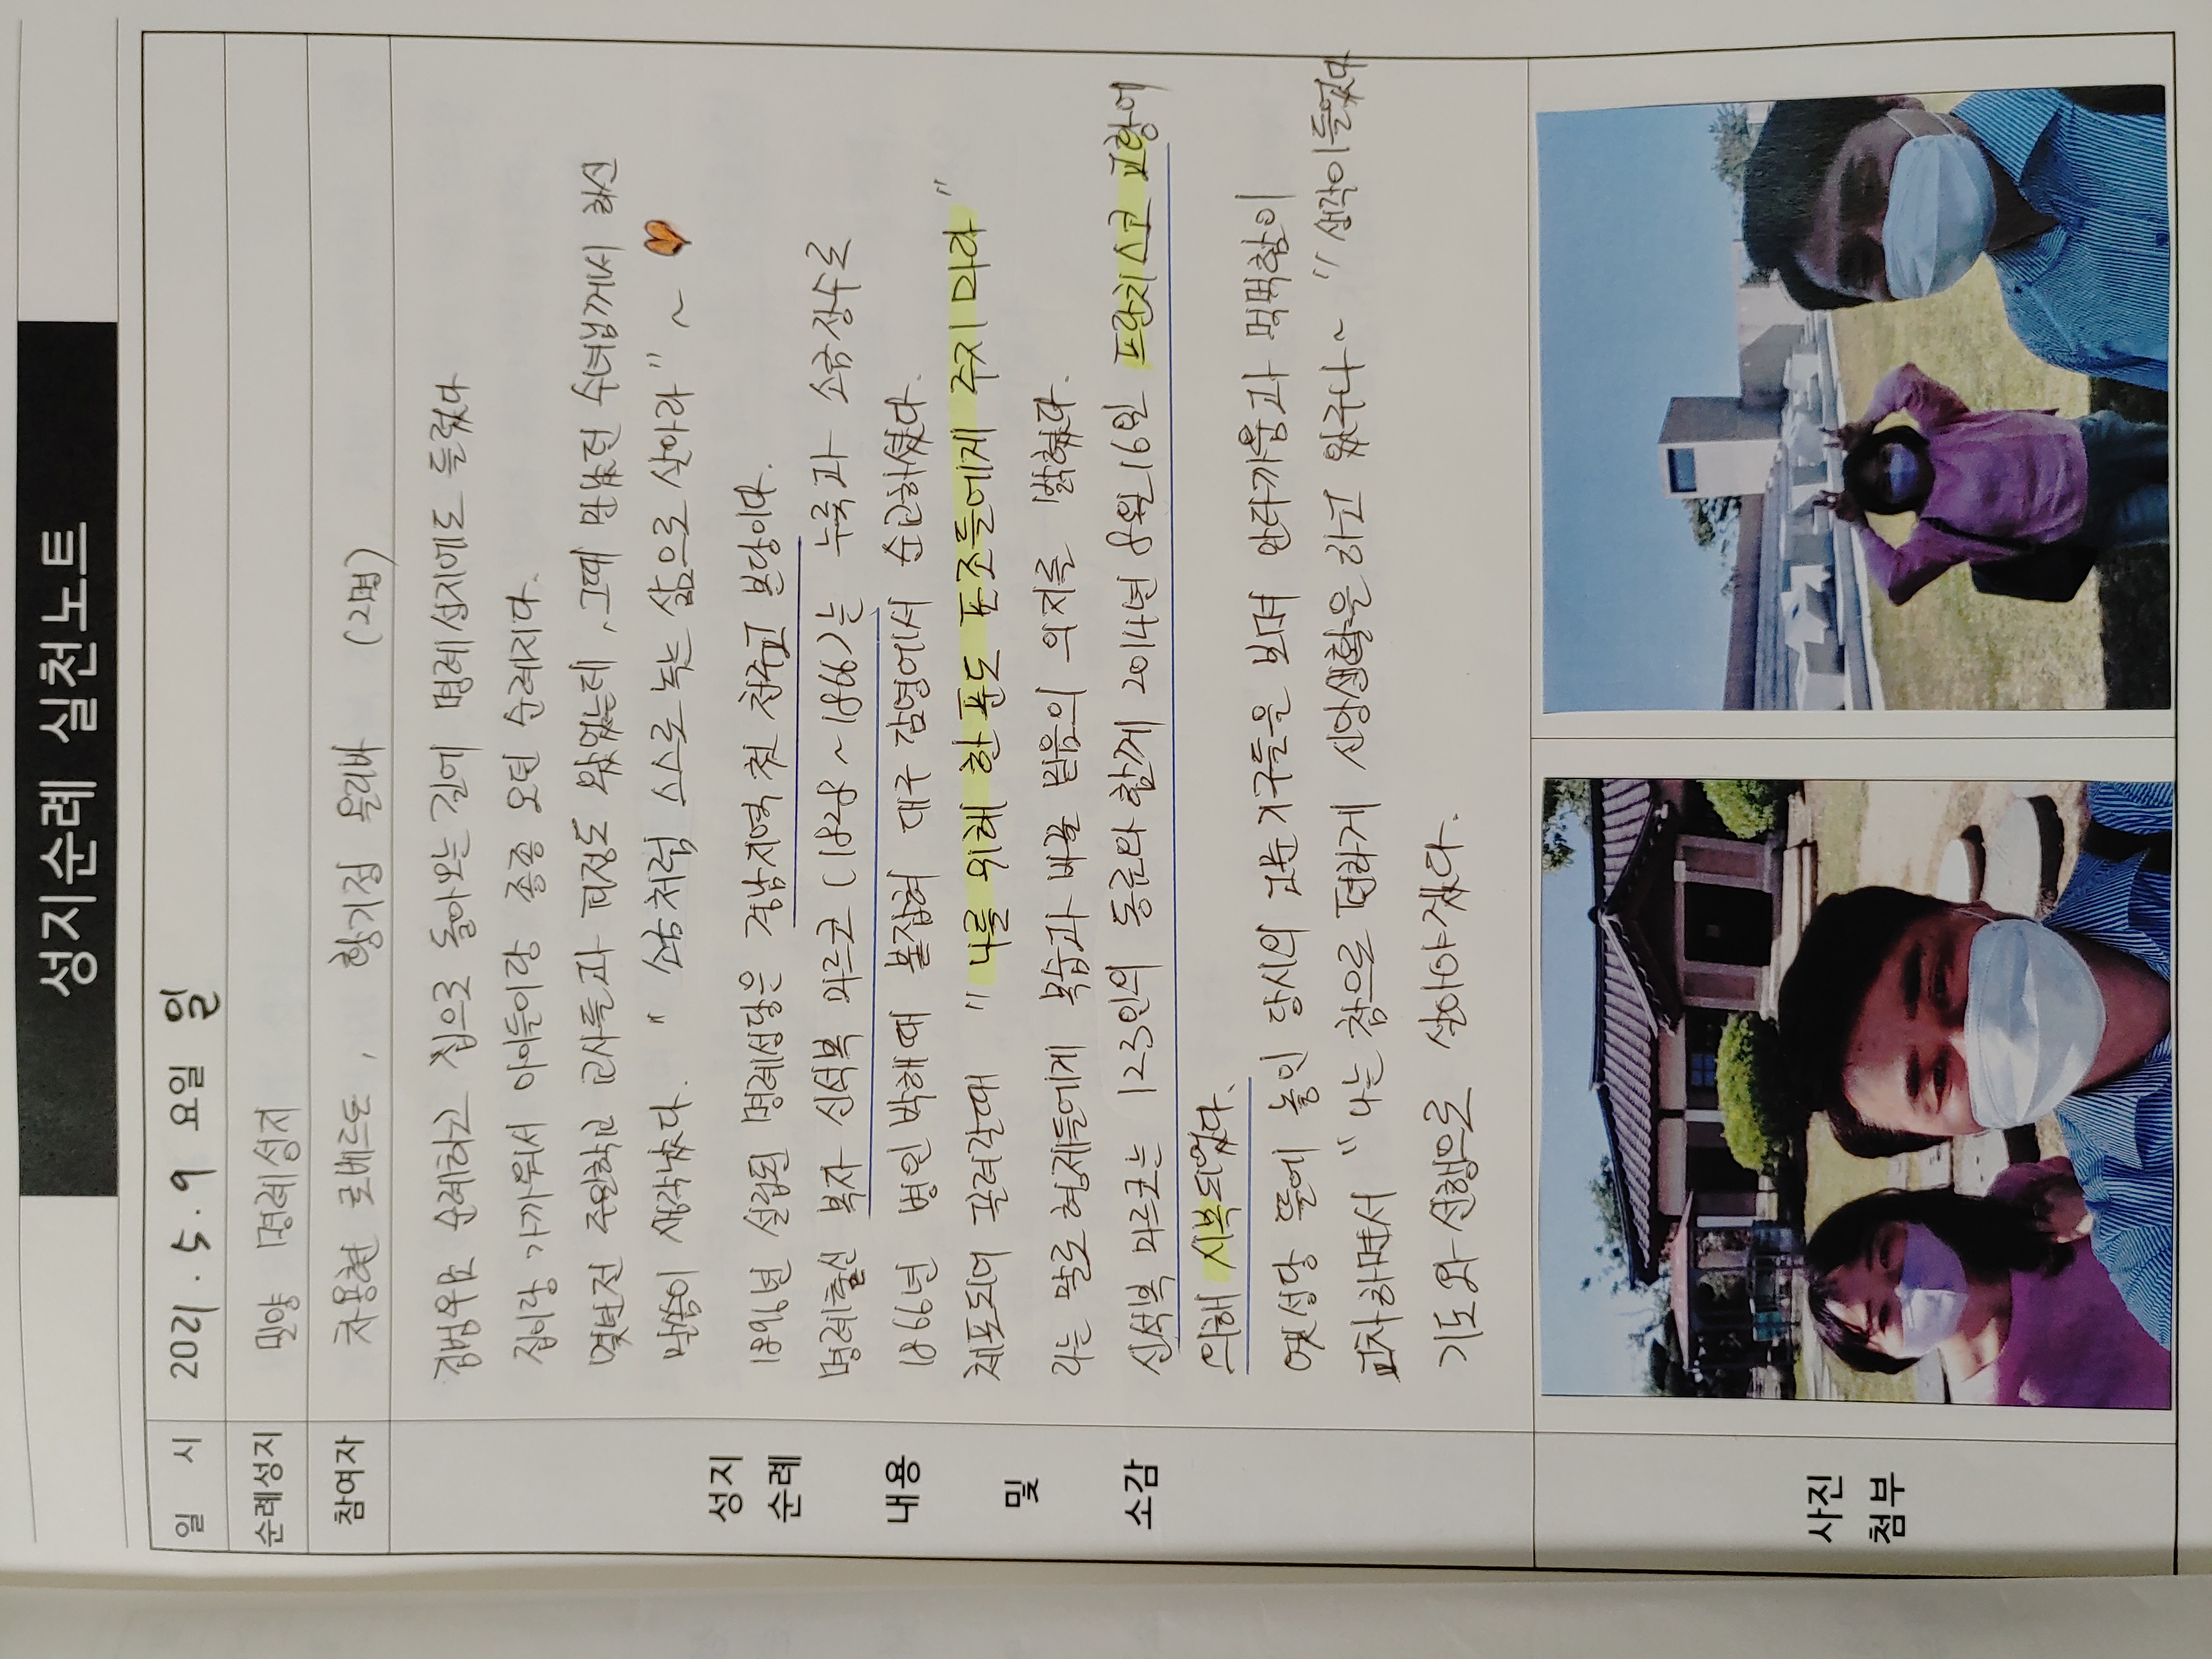 성지순례 실천노트
일 시 2021. 5. 9 요일 일
순례성지 밀양 명례성지
참여자 차용현 로베르또, 황기정 율리바 (2명)
성지
순례
내용
및
소감
김범우묘 순례하고 집으로 돌아오는 길에 명례성지에도 들렀다
집이랑 가까워서 아이들이랑 종종 오던 순례지다.
몇년전 주일학교 교사들과 피정도 왔었는데, 그때 만났던 수녀님께서 하신
말씀이 생각났다. " 소금처럼 스스로 녹는 삶으로 살아라" ~
1896년 설립된 명례성당은 경남지역 첫 천주교 본당이다.
명례출신 복자 신석복 마르코 (1828 ~ 1866)는 누룩과 소금장수로
1866년 병인박해때 붙잡혀 대구 감영에서 순교하셨다.
체포되어 끌려갈때 " 나를 위해 한 푼도 포졸들에게 주지 마라 "
라는 말로 형제들에게 복음과 바꿀 믿음의 의지를 밝혔다.
신석복 마르코는 123인의 동료와 함께 2014년 8월 16일 프란치스코 교황에
의해 시복되었다.
옛 성당 뜰에 놓인 당시의 고문기구들을 보며 안타까움과 먹먹함이
교차하면서 " 나는 참으로 편하게 신앙생활을 하고 있구나 ~ " 생각이 들었다
기도와 선행으로 살아야겠다.
사진
첨부